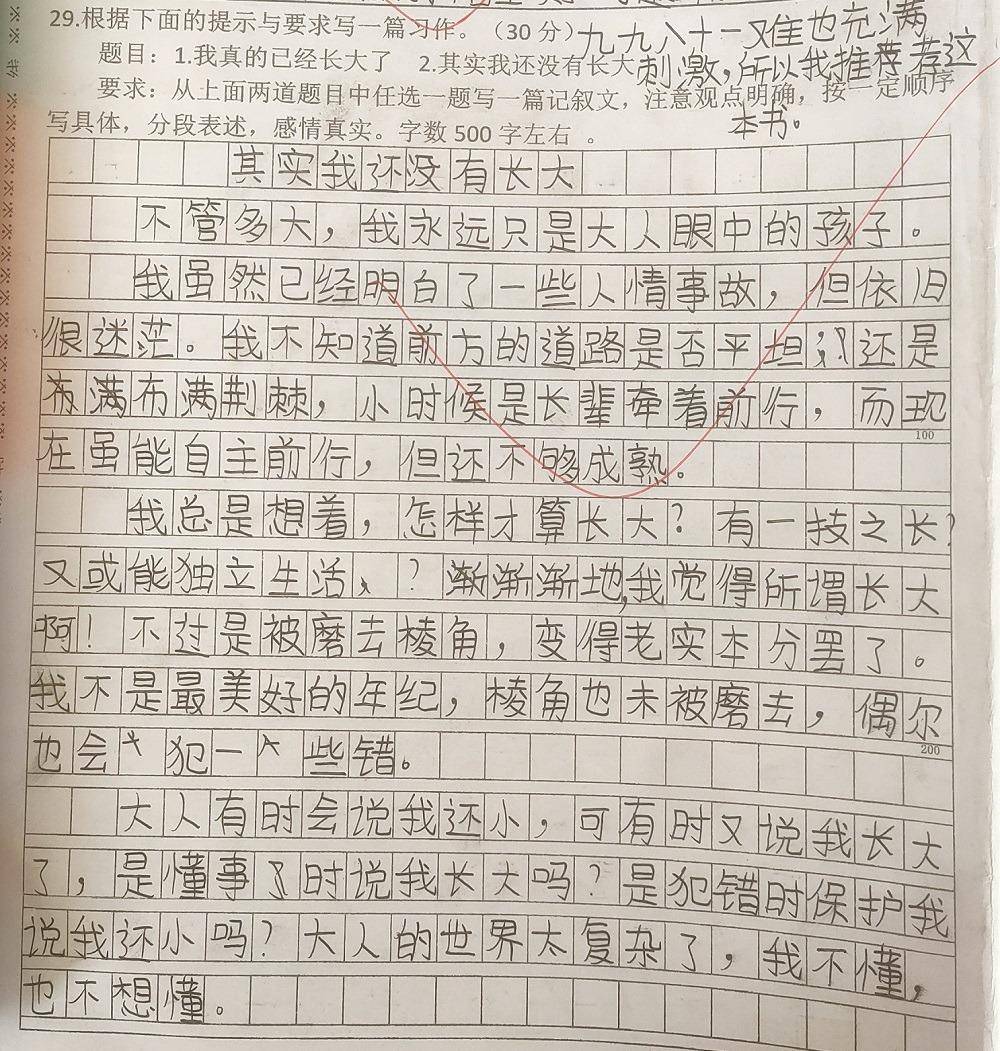 29.根据下面的提示与要求写一篇习作。（30 分）九九八十一难也充满
题目：1.我真的已经长大了 2.其实我还没有长大 刺激，所以我推荐荐这
要求：从上面两道题目中任选一题写一篇记叙文，注意观点明确，按一定顺序
本书。
写具体，分段表述，感情真实。字数 500 字左右 。
其实我还没有长大
不管多大，我永远只是大人眼中的孩子。
我虽然已经明白了一些人情事故，但依旧
很迷茫。我不知道前方的道路是否平坦；？还是
布满布满荆棘，小时候是长辈牵着前行，而现
100
在虽能自主前行，但还不够成熟。
我总是想着，怎样才算长大？有一技之长？
又或能独立生活、？渐渐渐地，我觉得所谓长大
啊！不过是被磨去棱角，变得老实本分罢了。
我不是最美好的年纪，棱角也未被磨去，偶尔
200
也会犯一些错。
大人有时会说我还小，可有时又说我长大
了，是懂事了时说我长大吗？是犯错时保护我
说我还小吗？大人的世界太复杂了，我不懂，
也不想懂。